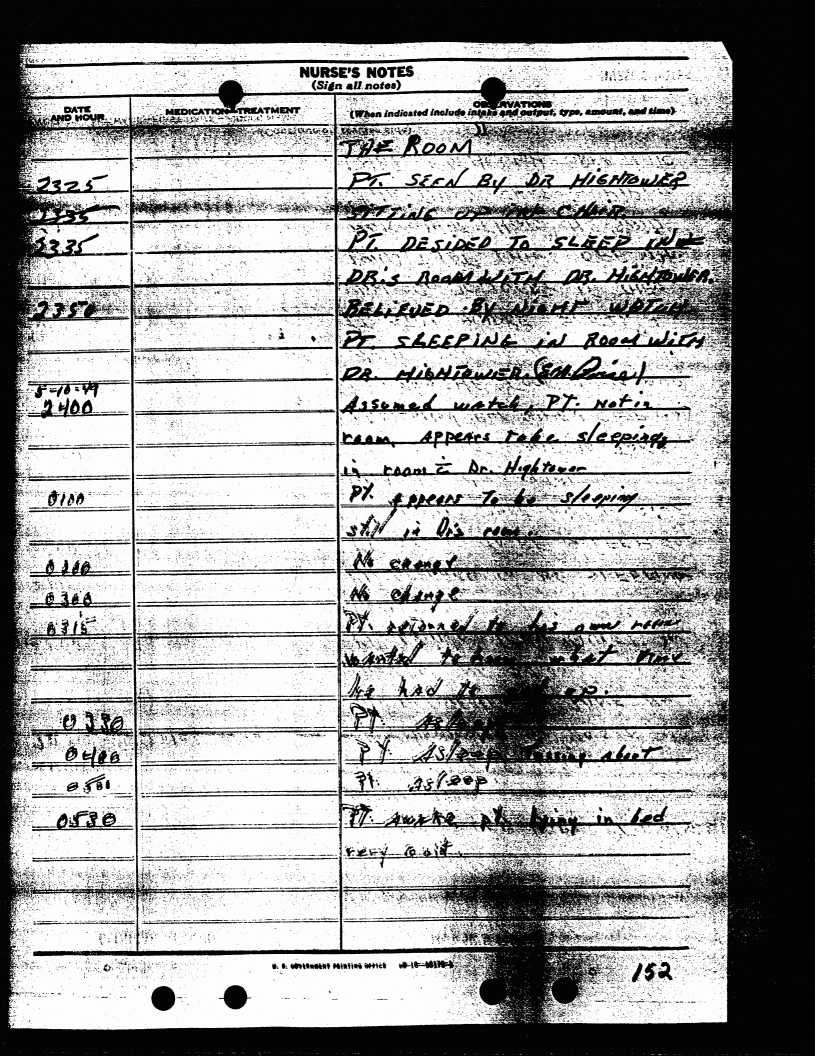 NURSE'S NOTES
(Sign all notes)
DATE AND HOUR MEDICATIONS TREATMENT OBSERVATIONS
(When indicated include intake and output, type, amount, and time)
THE ROOM"
2325 PT. SEEN BY DR HIGHTOWER
2335 SITTING UP IN CHAIR
2335 PT. DESIDED TO SLEEP IN
DR'S ROOM WITH DR. HIGHTOWER.
2350 RELIEVED BY NIGHT WATCH.
PT. SLEEPING IN ROOM WITH
DR. HIGHTOWER.
5-10-49
2400 Assumed watch, PT. Not in
room, Appears to be sleeping
in room c̄ Dr. Hightower
0100 Pt. appears to be sleeping
still in Drs room.
0200 No change
0300 No change
0315 Pt. returned to his own room
wanted to know what time
he had to get up.
0330 Pt. Asleep
0400 Pt Asleep, Tossing about
0500 Pt. Asleep
0530 Pt. awake pt. lying in bed
very quiet.
U. S. GOVERNMENT PRINTING OFFICE
152